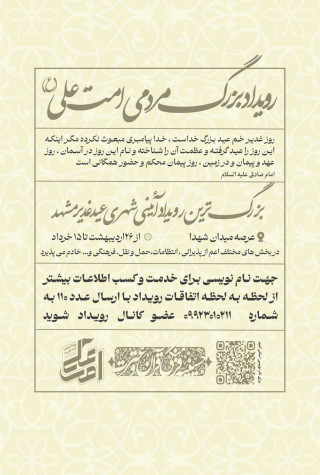 رویداد بزرگ مردمی امت علی (ع)
روز غدیر خم عید بزرگ خداست ، خدا پیامبری مبعوث نکرده مگر اینکه
این روز را عید گرفته و عظمت آن را شناخته و نام این روز در آسمان ، روز
عهد و پیمان و در زمین ، روز پیمان محکم و حضور همگانی است
امام صادق علیه السلام
بزرگ ترین رویداد آئینی شهری عید غدیر مشهد
عرصه میدان شهدا از ۲۶ اردیبهشت تا ۱۵ خرداد
در بخش های مختلف اعم از پذیرائی ، انتظامات، حمل و نقل، فرهنگی و... خادم می پذیرد
جهت نام نویسی برای خدمت و کسب اطلاعات بیشتر
از لحظه به لحظه اتفاقات رویداد با ارسال عدد ۱۱۰ به
شماره ۰۹۹۲۳۰۱۰۲۱۱ عضو کانال رویداد شوید